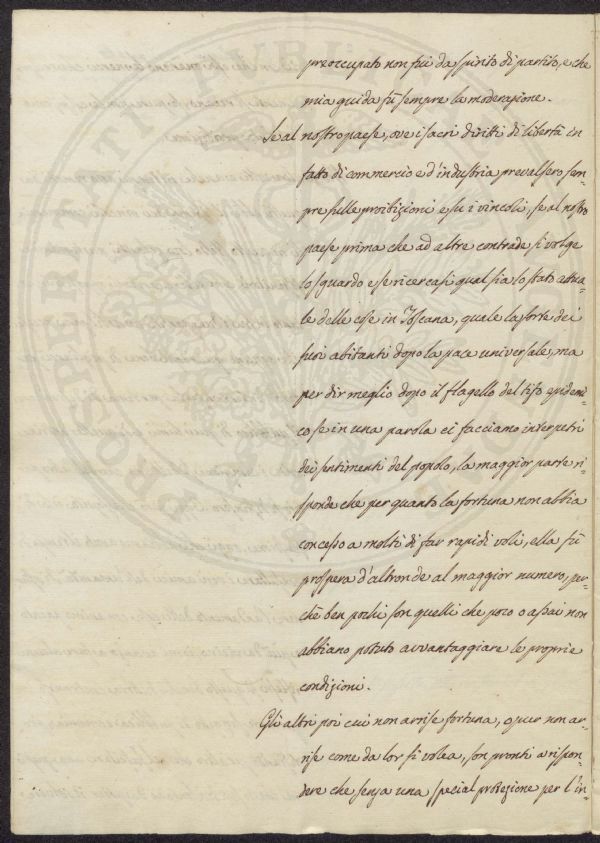 preoccupato non fù da spirito di partito, e che
mia guida fù sempre la moderazione.
Se al nostro paese, ove i sacri diritti di libertà in
fatto di commercio e d'industria prevalsero sem-
pre sulle proibizioni e su i vincoli, se al nostro
paese prima che ad altre contrade si volge
lo sguardo e se ricercasi qual sia lo stato attua-
le delle cose in Toscana, quale la sorte dei
suoi abitanti dopo la pace universale, ma
per dir meglio dopo il flagello del tifo epidemi-
co se in una parola ci facciamo interpetri
dei sentimenti del popolo, la maggior parte ri-
sponde che per quanto la fortuna non abbia
concesso a molti di far rapidi voli, ella fù
prospera d'altronde al maggior numero, per-
chè ben pochi son quelli che poco o assai non
abbiano potuto avvantaggiare le proprie
condizioni.
Gli altri poi cui non arrise fortuna, o pur non ar-
rise come da lor si volea, son pronti a rispon-
dere che senza una special protezione per l'in-